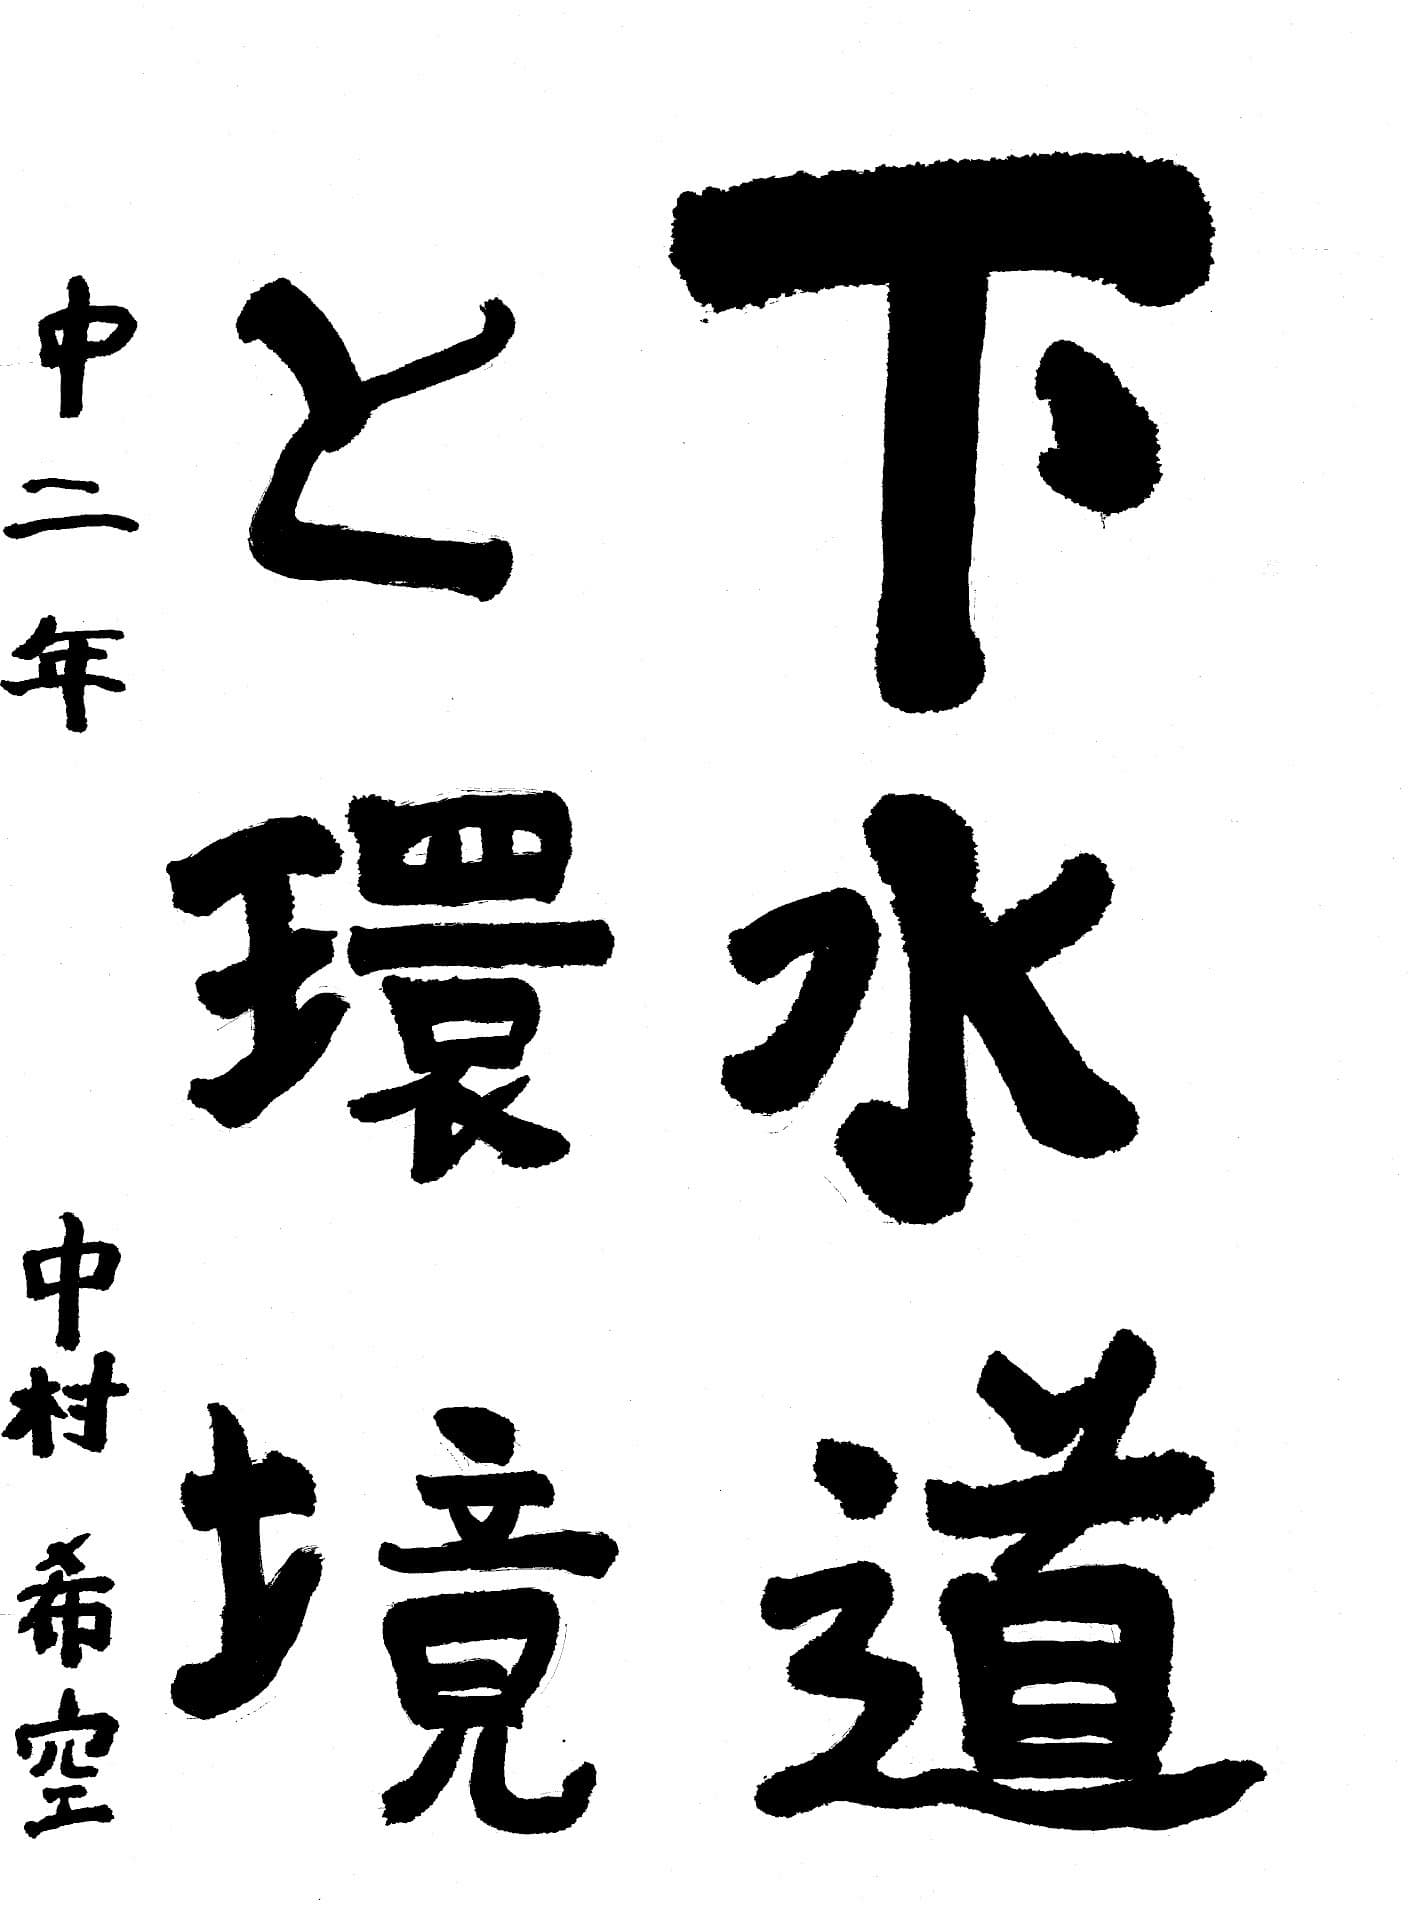 下水道
と環境
中二年 中村希空